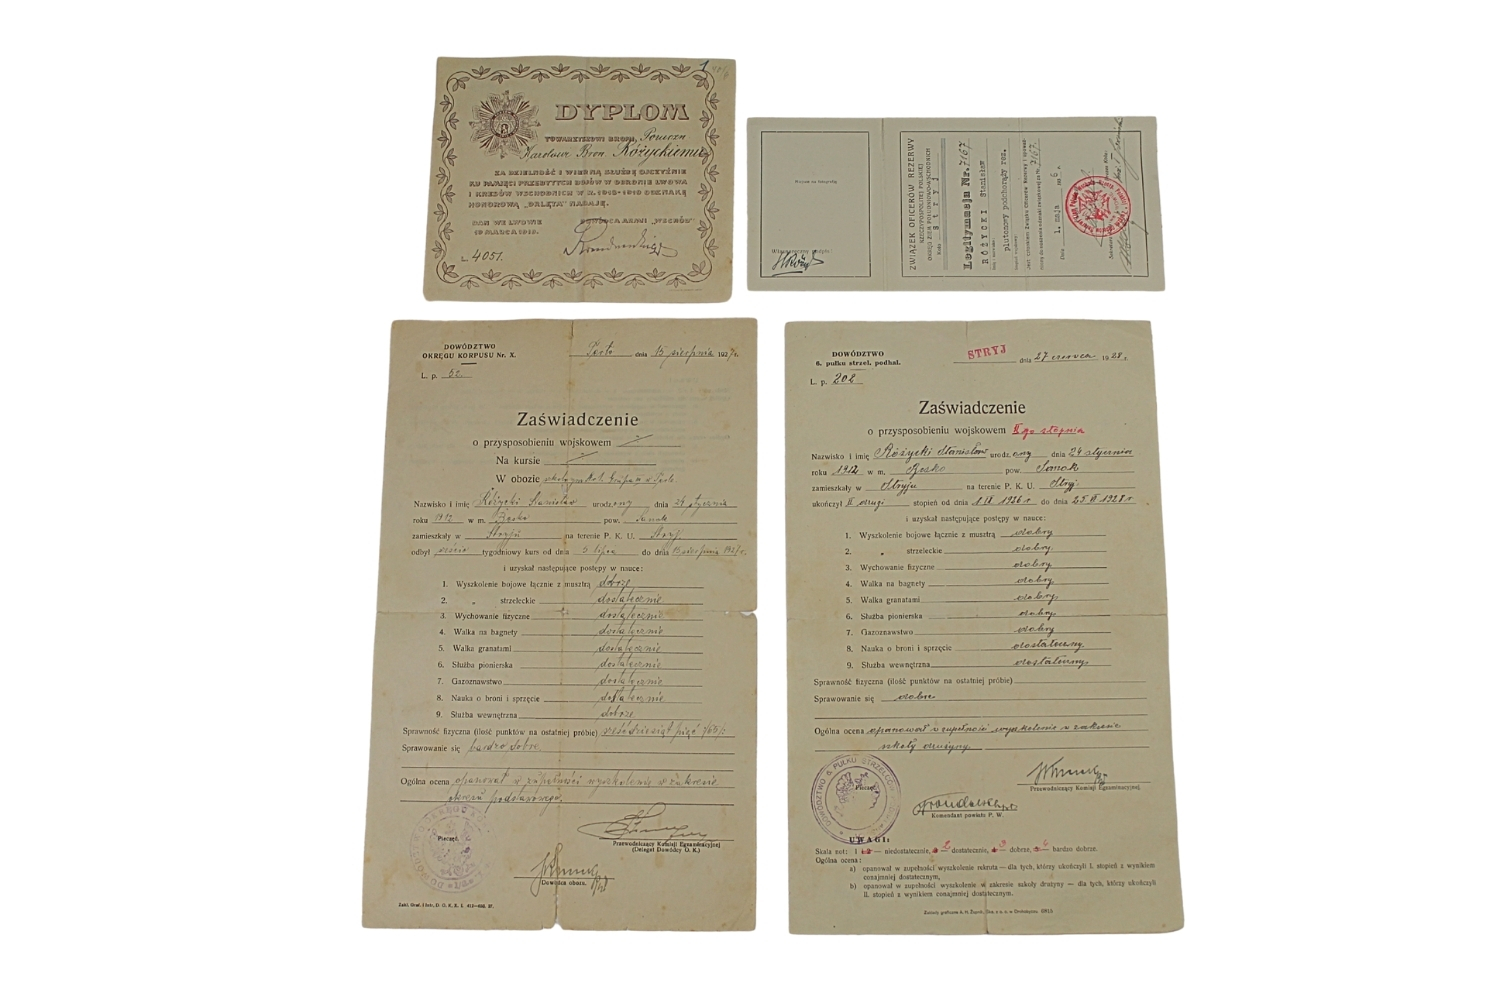 DYPLOM
TOWARZYSZOWI BRONI,
Karolowi Bron Różyckiemu
ZA DZIELNOŚĆ I WIERNĄ SŁUŻBĘ OJCZYŹNIE
KU PAMIĘCI PRZEBYTYCH BOJÓW W OBRONIE LWOWA
I KRESÓW WSCHODNICH W R. 1918-1919 ODZNAKĘ
HONOROWĄ „ORLĘTA" NADAJĘ.
DAN WE LWOWIE
19 MARCA 1919.
DOWÓDCA ARMII „WSCHÓD"
L. 4051.
Miejsce na fotografię
Własnoręczny podpis:
ZWIĄZEK OFICERÓW REZERWY
RZECZYPOSPOLITEJ POLSKIEJ
OKRĘG ZIEM POŁUDNIOWO-WSCHODNICH
Koło Stryj
Legitymacja Nr. 7167
RÓŻYCKI Stanisław
plutonowy podchorąży rez.
Dnia 1. maja
DOWÓDZTWO
OKRĘGU KORPUSU Nr. X.
dnia 15 sierpnia 1927 r.
L. p. 52
Zaświadczenie
o przysposobieniu wojskowem
Na kursie
W obozie
Nazwisko i imię Różycki Stanisław urodzony dnia 24 stycznia
roku 1912 w m. pow. Sanok
zamieszkały w Stryju na terenie P. K. U. Stryj
odbył sześcio tygodniowy kurs od dnia 5 lipca do dnia 15 sierpnia 1927 r.
i uzyskał następujące postępy w nauce:
1. Wyszkolenie bojowe łącznie z musztrą dobrze
2. „ strzeleckie dostatecznie
3. Wychowanie fizyczne dostatecznie
4. Walka na bagnety dostatecznie
5. Walka granatami dostatecznie
6. Służba pionierska dostatecznie
7. Gazoznawstwo dostatecznie
8. Nauka o broni i sprzęcie dostatecznie
9. Służba wewnętrzna dobrze
Sprawność fizyczna (ilość punktów na ostatniej próbie) sześćdziesiąt pięć /65/
Sprawowanie się bardzo dobre
Ogólna ocena opanował w zupełności wyszkolenie w zakresie
okresu podstawowego.
Pieczęć.
Przewodniczący Komisji Egzaminacyjnej
(Delegat Dowódcy O. K.)
Dowódca obozu.
DOWÓDZTWO
6. pułku strzel. podhal.
STRYJ dnia 27 czerwca 1928 r.
L. p. 202
Zaświadczenie
o przysposobieniu wojskowem II-go stopnia
Nazwisko i imię Różycki Stanisław urodz. ony dnia 24 stycznia
roku 1912 w m. pow. Sanok
zamieszkały w Stryju na terenie P. K. U. Stryj
ukończył II drugi stopień od dnia 1 IX 1926 r do dnia 25 VI 1928 r
i uzyskał następujące postępy w nauce:
1. Wyszkolenie bojowe łącznie z musztrą dobry
2. „ strzeleckie dobry
3. Wychowanie fizyczne dobry
4. Walka na bagnety dobry
5. Walka granatami dobry
6. Służba pionierska dobry
7. Gazoznawstwo dobry
8. Nauka o broni i sprzęcie dostateczny
9. Służba wewnętrzna dostateczny
Sprawność fizyczna (ilość punktów na ostatniej próbie)
Sprawowanie się dobre
Ogólna ocena opanował w zupełności wyszkolenie w zakresie
szkoły drużyny
Pieczęć
Przewodniczący Komisji Egzaminacyjnej.
Komendant powiatu P. W.
UWAGI:
Skala not: 1 — niedostatecznie, 2 dostatecznie, 3 dobrze, 4 bardzo dobrze.
Ogólna ocena:
a) opanował w zupełności wyszkolenie rekruta — dla tych, którzy ukończyli I. stopień z wynikiem
conajmniej dostatecznym,
b) opanował w zupełności wyszkolenie w zakresie szkoły drużyny — dla tych, którzy ukończyli
II. stopień z wynikiem conajmniej dostatecznym.